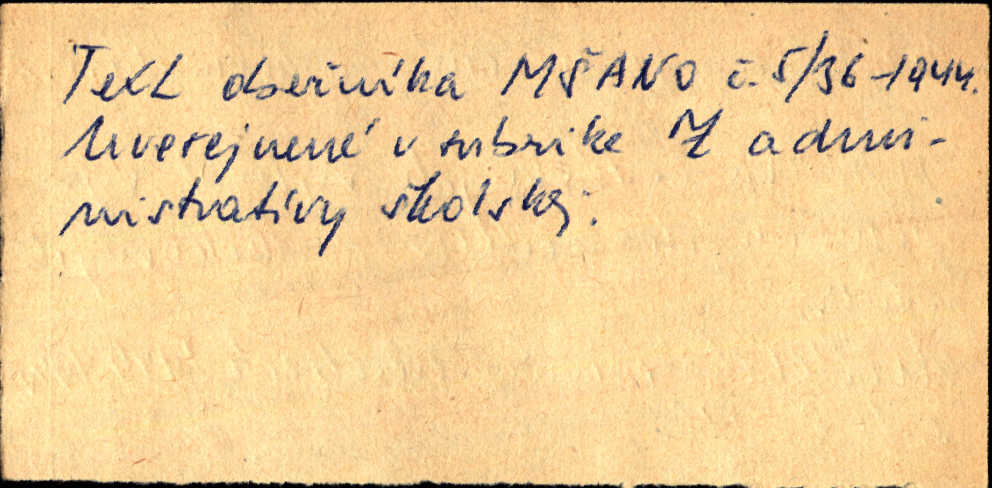 Text obežníka MŠANO č. 5/36-1944.
Uverejnené v rubrike Z admi-
nistratívy školskej.